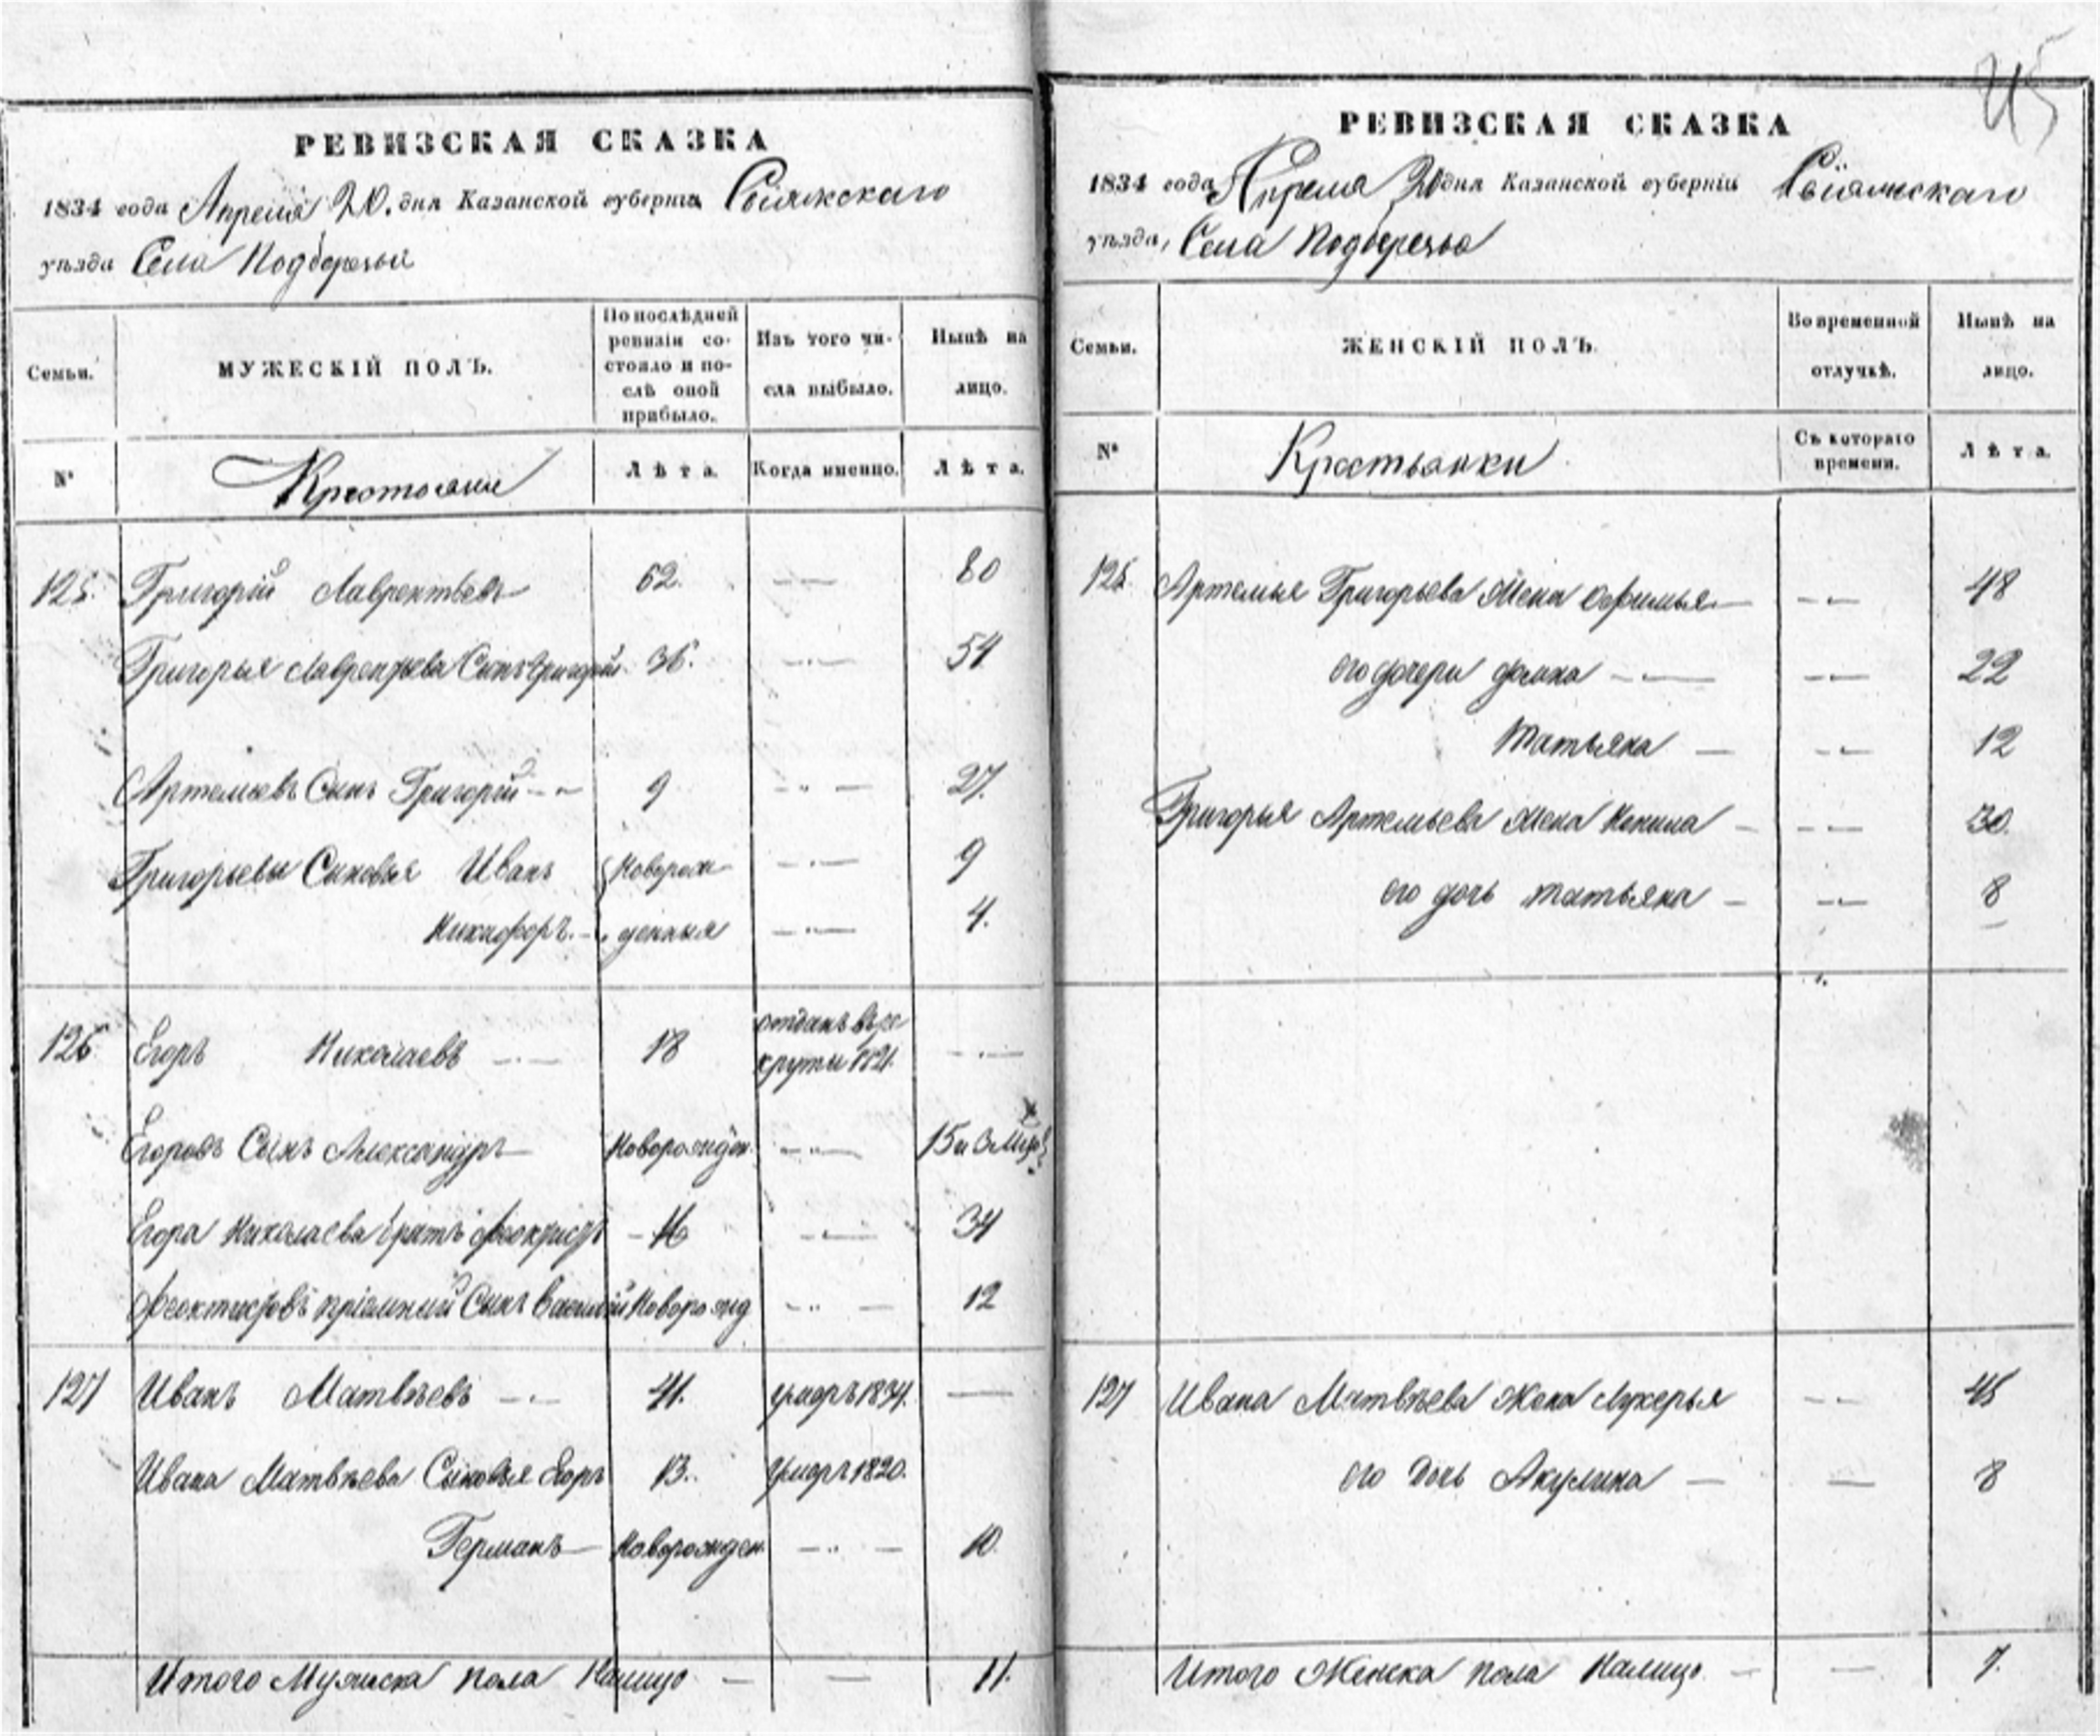 РЕВИЗСКАЯ СКАЗКА
1834 года Апреля 20. дня Казанской губернiи Свiяжскаго
уѣзда Села Подберезья
Семьи.
МУЖЕСКIЙ ПОЛЪ.
По послѣдней ревизiи со-
стояло и по-
слѣ оной
прибыло.
Изъ того чи-
сла выбыло.
Нынѣ на
лицо.
№
Крестьяне
Лѣта.
Когда именно.
Лѣта.
125. Григорiй Лаврентьевъ 62. 80
Григорья Лаврентьева Сынъ 36. 54
Артемьевъ Сынъ Григорiй 9 27.
Григорьевы Сыновья Иванъ Новорож 9
Никифоръ денныя 4.
126 Егоръ Николаевъ 18 отданъ въ ре
круты 1821.
Егоровъ Сынъ Александръ Новорожден. 15 и 3 мѣс
Егора Николаева братъ Феоктистъ 16 34
Феоктистовъ прiемный Сынъ Василiй Новорожд 12
127 Иванъ Матвѣевъ 41. умеръ 1831.
Ивана Матвѣева Сыновья Егоръ 13. Умеръ 1820.
Германъ Новорожден. 10.
Итого Мужеска пола Налицо 11.
45
РЕВИЗСКАЯ СКАЗКА
1834 года Апреля 20 дня Казанской губернiи Свiяжскаго
уѣзда, Села Подберезья
Семьи.
ЖЕНСКIЙ ПОЛЪ.
Во временной
отлучкѣ.
Нынѣ на
лицо.
№
Крестьянки
Съ котораго
времени.
Лѣта.
125. Артемья Григорьева Жена Офимья 48
его дочери Домна 22
Татьяна 12
Григорья Артемьева Жена 30.
его дочь Татьяна 8
127 Ивана Матвѣева Жена Лукерья 45
его Дочь Акулина 8
Итого Женска пола Налицо. 7.